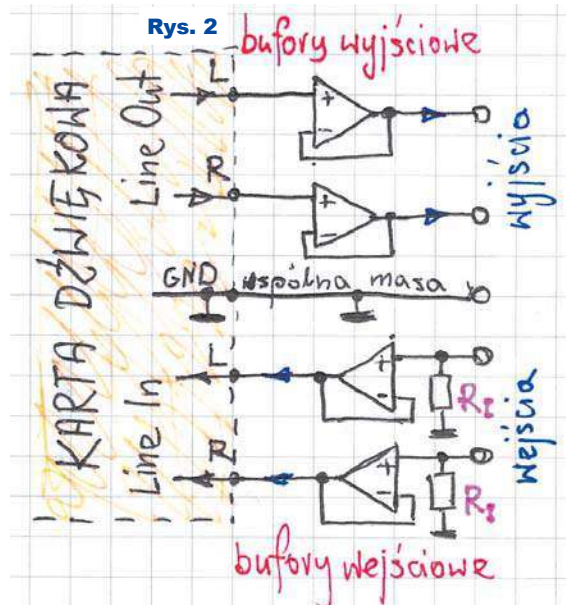 Rys. 2
bufory wyjściowe
KARTA DŹWIĘKOWA
Line Out
L
+
-
R
+
-
wyjścia
GND wspólna masa
Line In
L
+
-
RI
R
+
-
RI
wejścia
bufory wejściowe